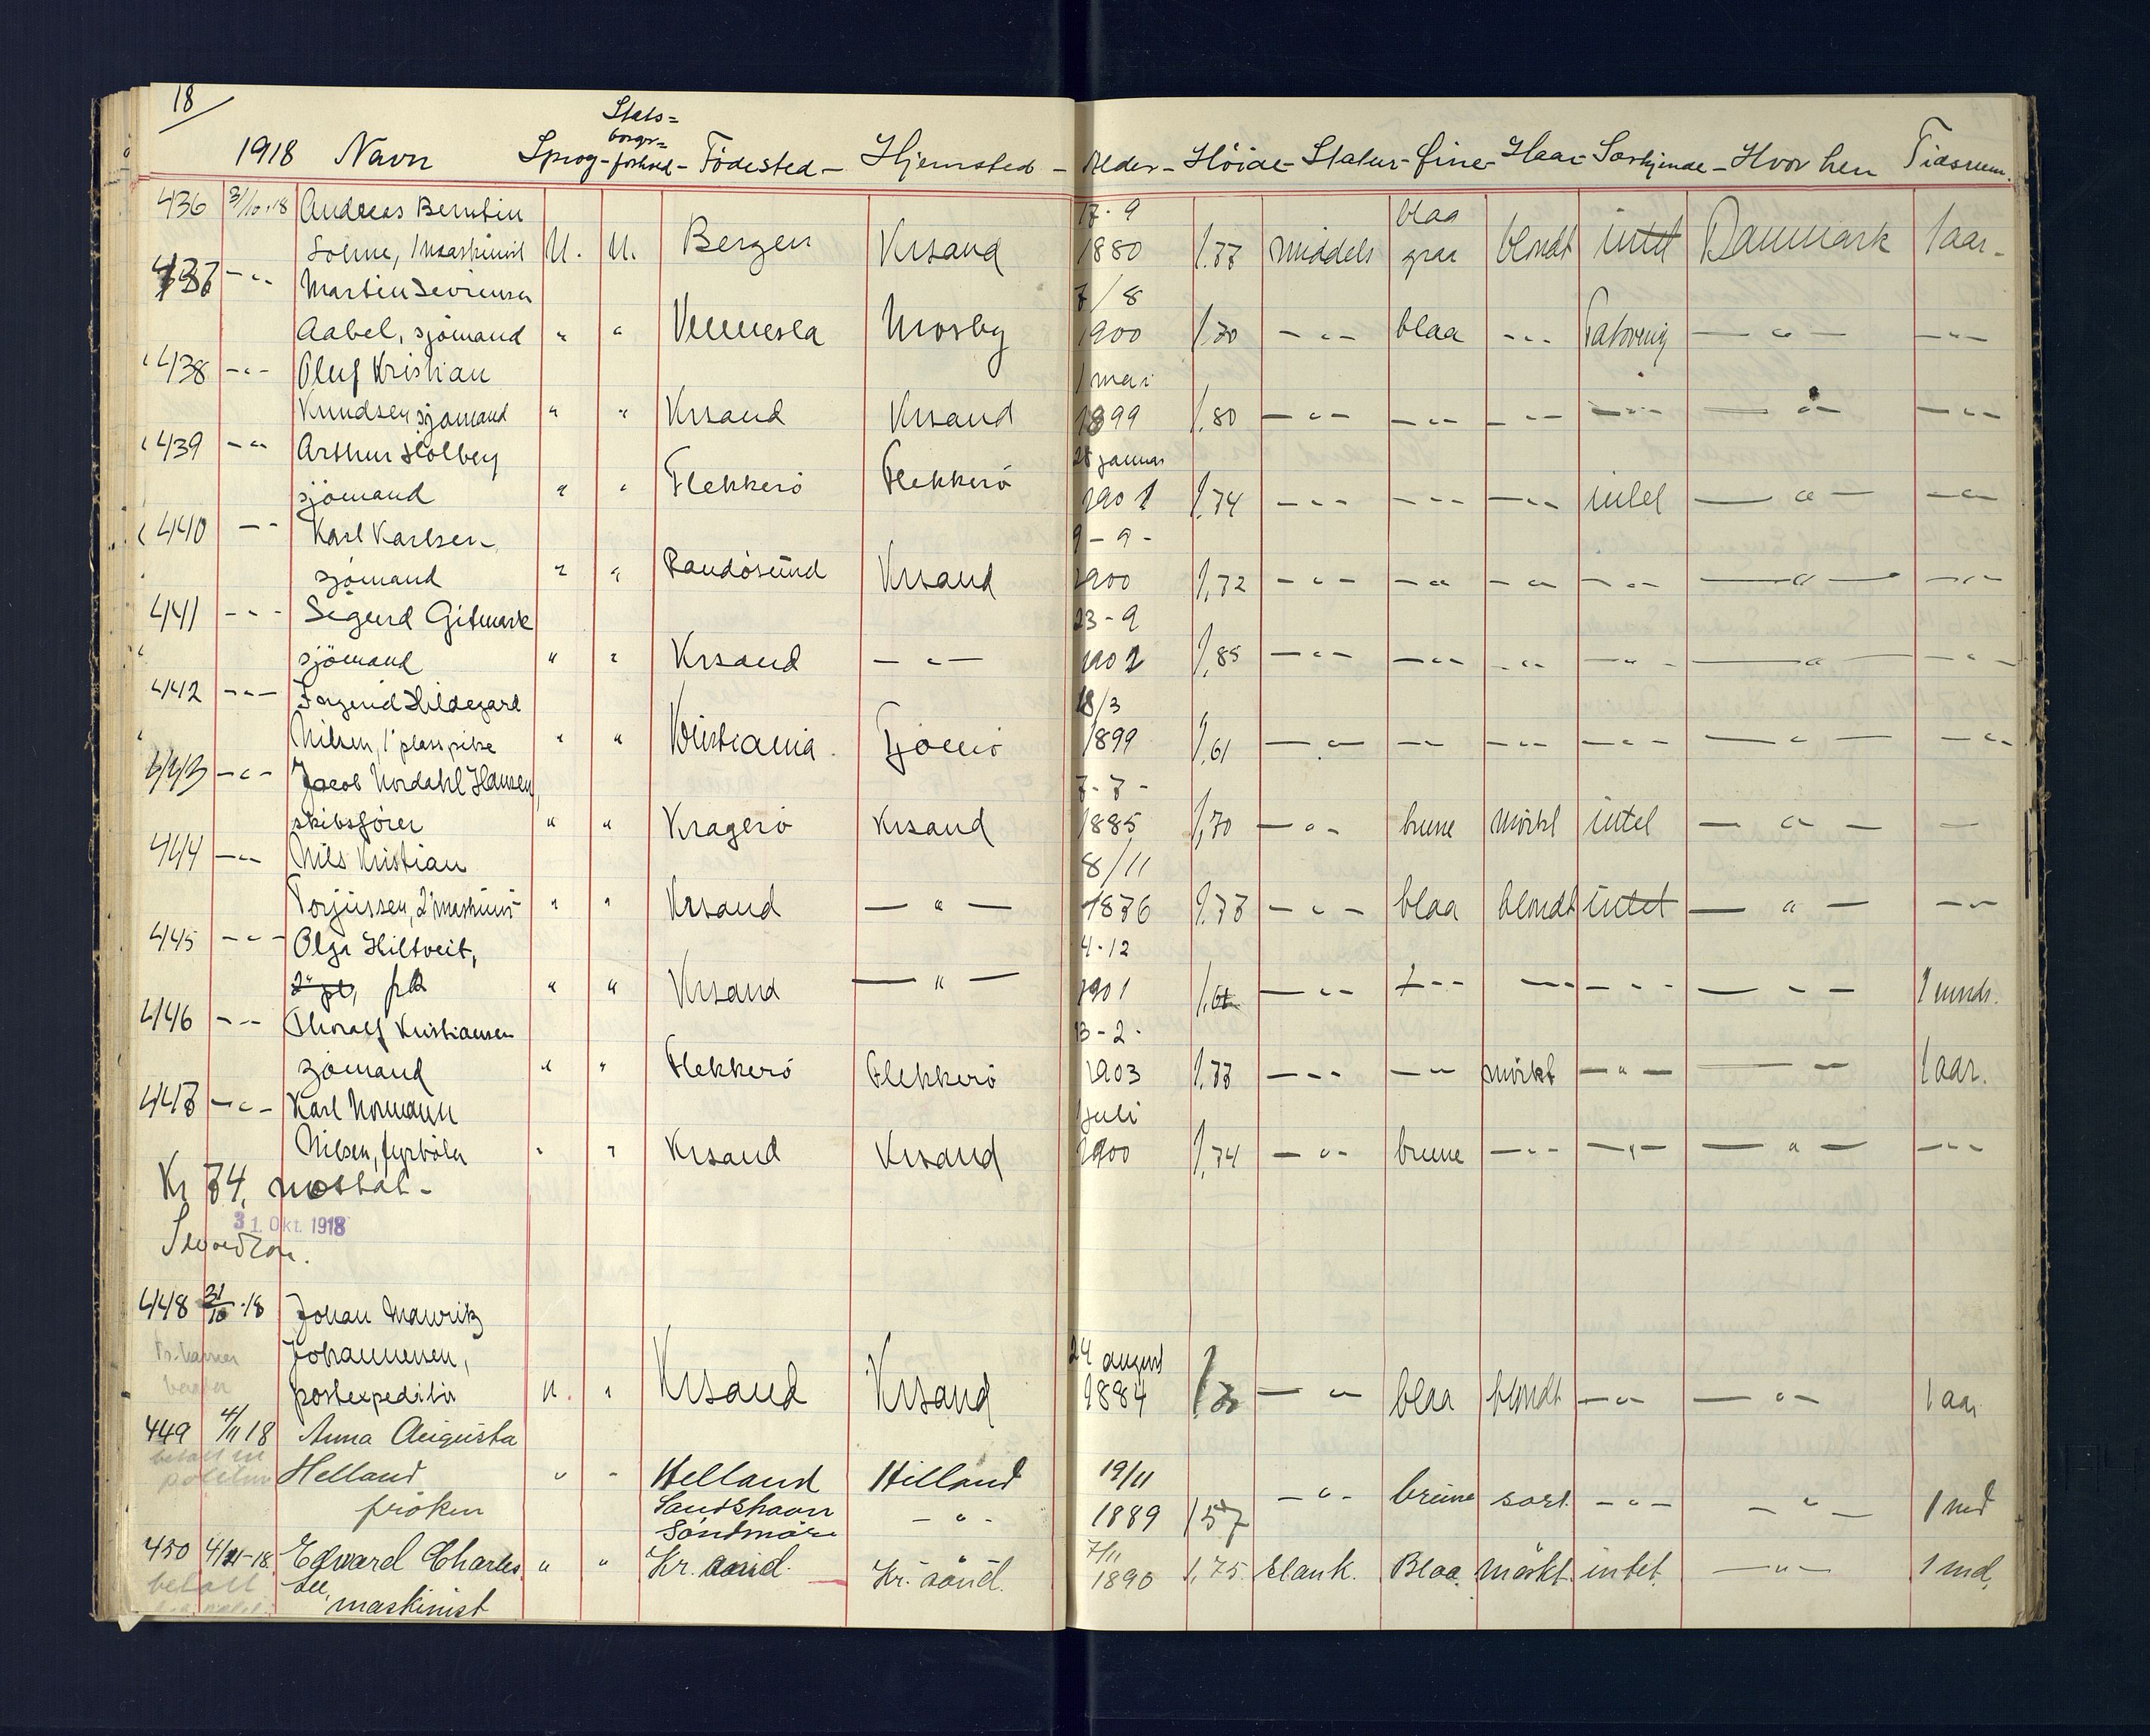 18
1918 Navn Sprog - Stats= borger= forhold - Födested - Hjemsted - Alder - Höide - Statur - Öine - Haar - Særkjende - Hvor hen Tidsrum.
436 31/10.18 Andreas Berntin 17.9 blaa
Solme, 1 maskinist N. N. Bergen Krsand 1880 1.77 middels graa blondt intet Danmark 1 aar -
437 - " - Martin Sevrinsen 7/8
Aabel, sjömand " " Vennesla Mosby 1900 1.70 - " - blaa - " - Tatovering - " - - " -
438 - " - Oluf Kristian 1 mai
Knudsen sjömand " " Krsand Krsand 1899 1.80 - " - - " - - " - - " - - " - - " -
439 - " - Arthur Holbey 28 januar
sjömand " " Flekkerö Flekkerö 1901 1.74 - " - - " - - " - intet - " - - " -
440 - " - Karl Karlsen 9 - 9 -
sjömand " " Randösund Krsand 1900 1.72 - " - - " - - " - - " - - " - - " -
441 - " - Sigurd Gitmark 23 - 9
sjömand " " Krsand - " - 1902 1.85 - " - - " - - " - - " - - " - - " -
442 - " - Hildegard 18/3
Nilsen, 1' plasspike " " Kristiania. Tjömö 1899 1.61 - " - - " - - " - - " - - " - - " -
443 - " - Jacob Nordahl Hansen, 7 - 7 -
skibsförer " " Kragerö Krsand 1885 1.70 - " - brune mörkt intet - " - -
444 - " - Nils Kristian 8/11
Torjussen, 2' maskinist " " Krsand - " - 1876 1.77 - " - blaa blondt intet - " - - " -
445 - " - Olga Hiltveit, 4 - 12
frk " " Krsand - " - 1901 1.61 - " - - " - - " - - " - - " - 1 mnds.
446 - " - Thoralf Kristiansen 13 - 2 -
sjömand " " Flekkerö Flekkerö 1903 1.77 - " - - " - mörkt - " - - " - 1 aar.
447 - " - Karl Normann juli
Nilsen, fyrböter " " Krsand Krsand 1900 1.74 - " - brune - " - - " - - " - - " -
Kr 74, mottat -
31. Okt. 1918
448 31/10 .18 Johan Mauritz
Johannesen, 24 august
postexpeditör N. " Krsand Krsand 1884 1.70 - " - blaa blondt - " - - " - 1 aar
449 4/11 18 Anna Augusta
betalt
Helland " " Helland Helland 19/11
fröken Sandshavn - " - 1889 157 - " - brune sort - " - - " - 1 md
Söndmöre
450 4/11-18. Edvard Charles " " Kr. sand. Kr. sand. 7/11 1890 1.75. Slank. Blaa. mörkt. intet. - " - 1 md.
betalt
maskinist